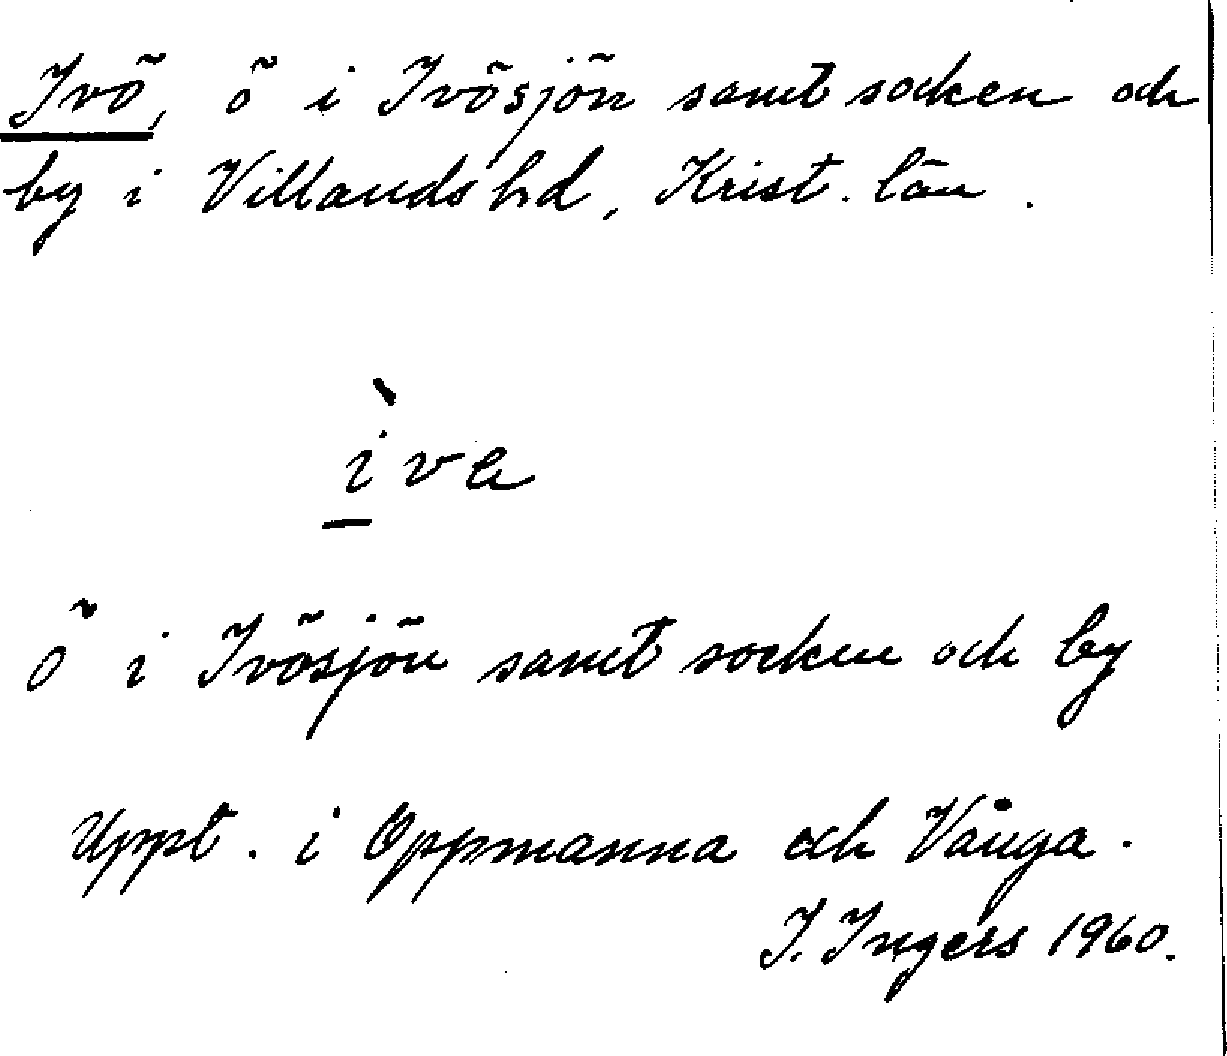 Ivö, ö i Ivösjön samt socken och
by i Villands hd, Krist. län.
ìve
ö i Ivösjön samt socken och by
Uppt. i Oppmanna och Vånga.
I. Ingers 1960.